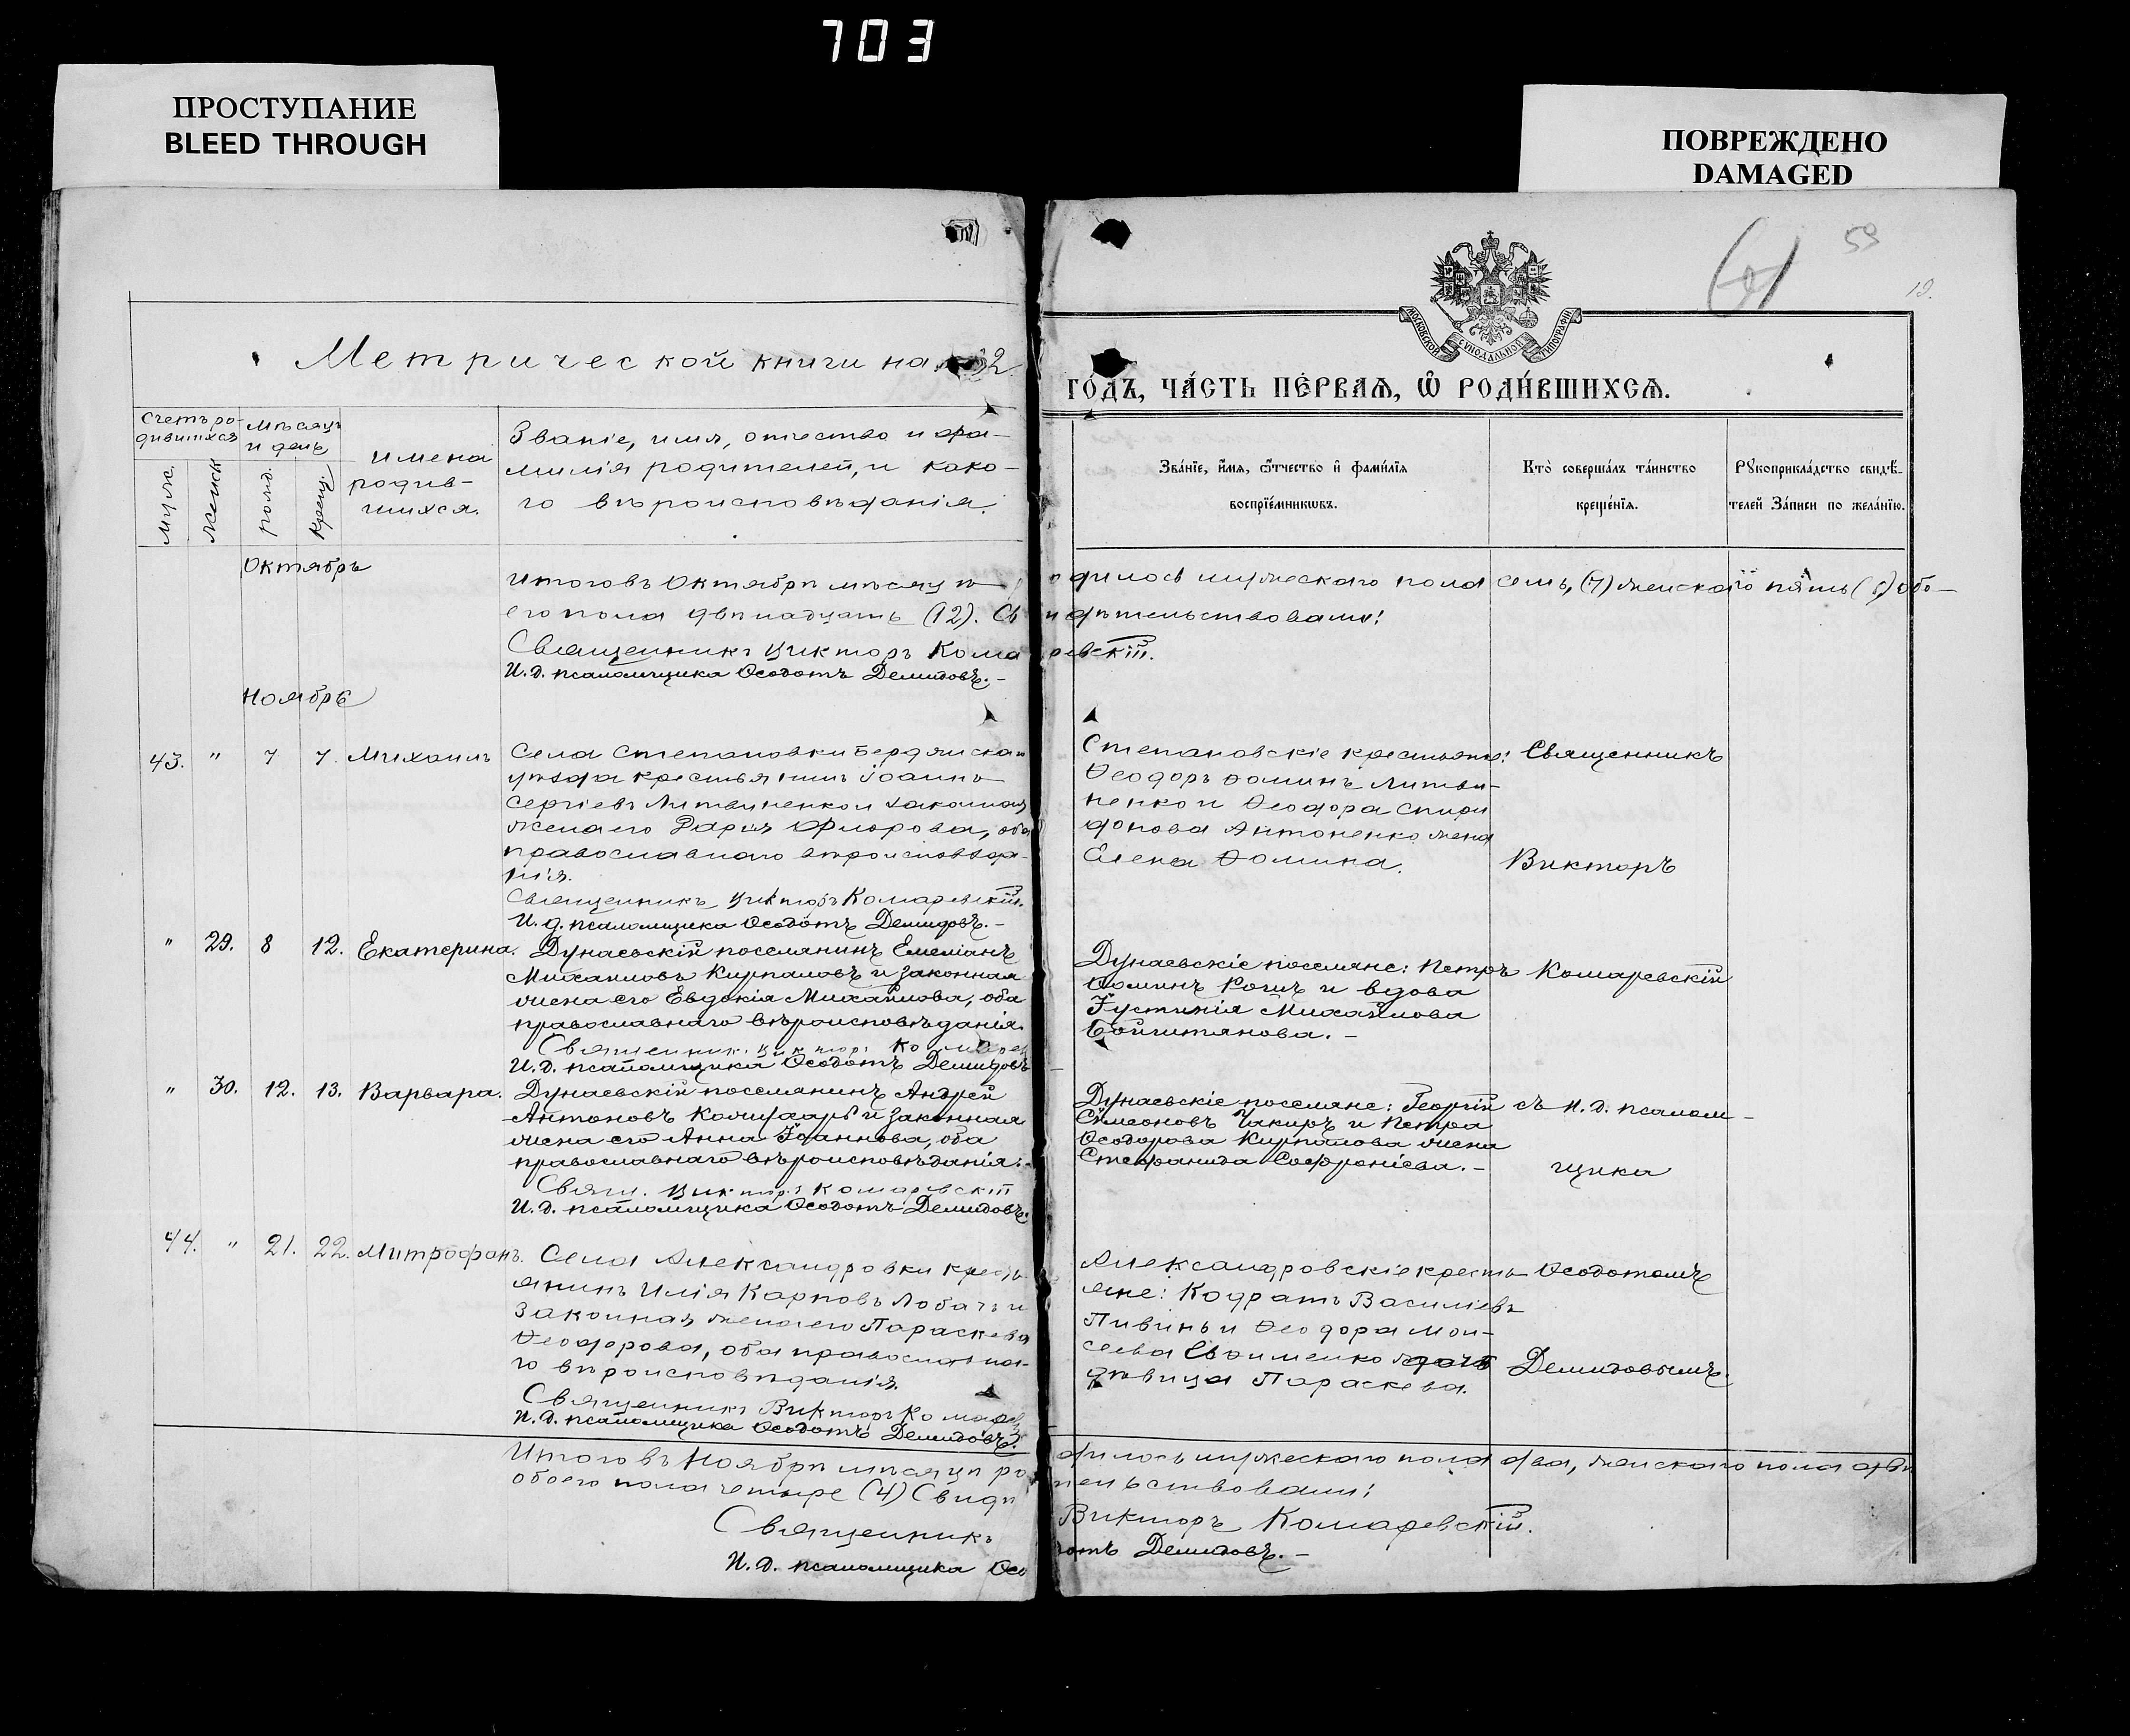 703
ПРОСТУПАНИЕ
BLEED THROUGH
ПОВРЕЖДЕНО
DAMAGED
59
19.
МОСКОВСКОЙ СѴНОДАЛЬНОЙ ТИПОГРАФІИ
Метрической книги на
ГО́ДЪ, ЧА́СТЬ ПЕ́РВАѦ, Ѽ РОДИ́ВШИХСѦ.
Счетъ ро-
дившихся
Мѣсяцъ
и день
Муж.
Женск
рожд.
Крещ.
имена
родив-
шихся.
Званіе, имя, отчество и фа-
милія родителей, и како-
го вѣроисповѣданія.
Зва́нїе, и҆́мѧ, ѻ҆́тчество и҆ фами́лїѧ
воспрїе́мникѡвъ.
Кто̀ соверша́лъ та́инство
креще́нїѧ.
Рꙋкоприкла́дство свидѣ́-
телей За́писи по жела́нїю.
Октябрь
Итого въ Октябрѣ мѣсяцѣ родилось мужескаго пола семь, (7) женскаго пять (5) обо-
его пола двѣнадцать (12). Свидѣтельствовали:
Священникъ Викторъ Комаревскій.
И. д. псаломщика Ѳеодотъ Демидовъ.-
Ноябрь
43. " 7 7 Михаилъ
Села Степановки Бердянскаго
уѣзда крестьянинъ Іоаннъ
Сергіевъ Литвиненко и законная
жена его Флорова, оба
православнаго вѣроисповѣда-
нія.
Священникъ Викторъ Комаревскій.
И. д. псаломщика Ѳеодотъ Демидовъ.-
Степановскіе крестьяне:
Ѳеодоръ Ѳоминъ Литви-
ненко и Ѳеодора Спири
донова Антоненко жена
Елена Ѳомина.
Священникъ
Викторъ
" 29. 8 12. Екатерина.
Дунаевскій поселянинъ Емеліанъ
Михаиловъ Кирпаловъ и законная
жена его Евдокія Михайлова, оба
православнаго вѣроисповѣданія.
Священник. Виктор. Комарев
И. д. псаломщика Ѳеодотъ Демидовъ
Дунаевскіе поселяне: Петръ
Ѳоминъ и вдова
Іустинія Михайлова
Комаревскій
" 30. 12. 13. Варвара.
Дунаевскій поселянинъ Андрей
Антоновъ и законная
жена его Анна Іоаннова, оба
православнаго вѣроисповѣданія.-
Свящ. Викторъ Комаревскій
И. д. псаломщика Ѳеодотъ Демидовъ.
Дунаевскіе поселяне: Георгій
Симеоновъ Чакиръ и Петра
Ѳеодорова Кирпалова жена
Стефанида Софроніева.-
съ И. д. псалом-
щика
44. " 21. 22. Митрофанъ.
Села Александровки кресть
янинъ Илія Карповъ Лобачъ и
законная жена его Параскева
Ѳеодорова, оба православна-
го вѣроисповѣданія.
Священникъ Викторъ Комарев
И. д. псаломщика Ѳеодотъ Демидовъ.
Александровскіе кресть-
яне: Кодратъ Василіевъ
Пивинь и Ѳеодора Мои-
сеева Евѳименко дочь
дѣвица Параскева.
Ѳеодотомъ
Демидовымъ.
Итого въ Ноябрѣ мѣсяцѣ родилось мужескаго пола два, женскаго пола двѣ
обоего пола четыре (4) Свидѣтельствовали:
Священникъ Викторъ Комаревскій.
И. д. псаломщика Ѳеодотъ Демидовъ.-